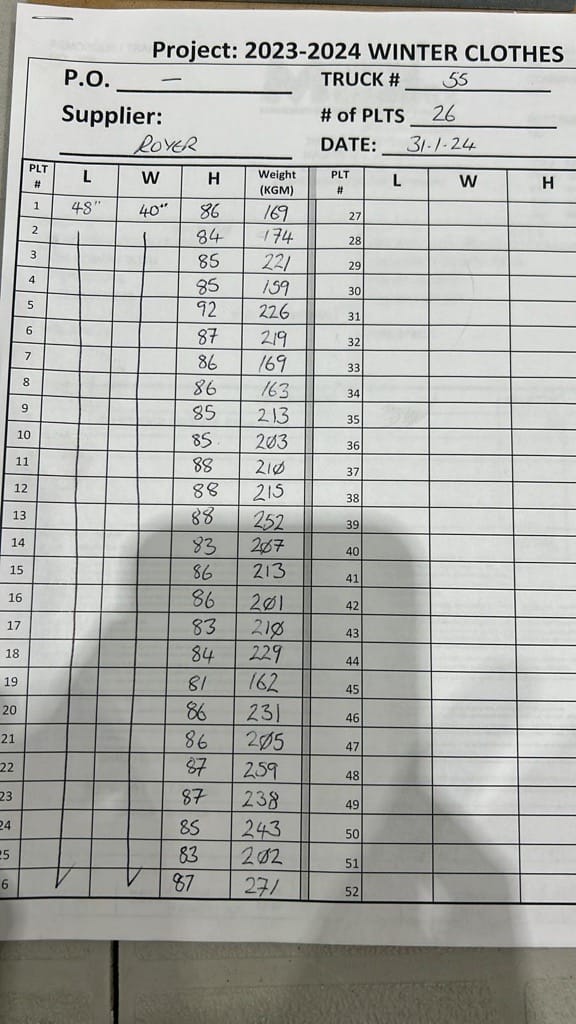 Project: 2023-2024 WINTER CLOTHES
P.O. — TRUCK # 55
Supplier: # of PLTS 26
ROYER DATE: 31-1-24
PLT # L W H Weight (KGM) PLT # L W H
1 48" 40" 86 169 27
2 84 174 28
3 85 221 29
4 85 159 30
5 92 226 31
6 87 219 32
7 86 169 33
8 86 163 34
9 85 213 35
10 85 203 36
11 88 210 37
12 88 215 38
13 88 252 39
14 83 207 40
15 86 213 41
16 86 201 42
17 83 210 43
18 84 229 44
19 81 162 45
20 86 231 46
21 86 205 47
22 87 259 48
23 87 238 49
24 85 243 50
25 83 202 51
6 87 271 52